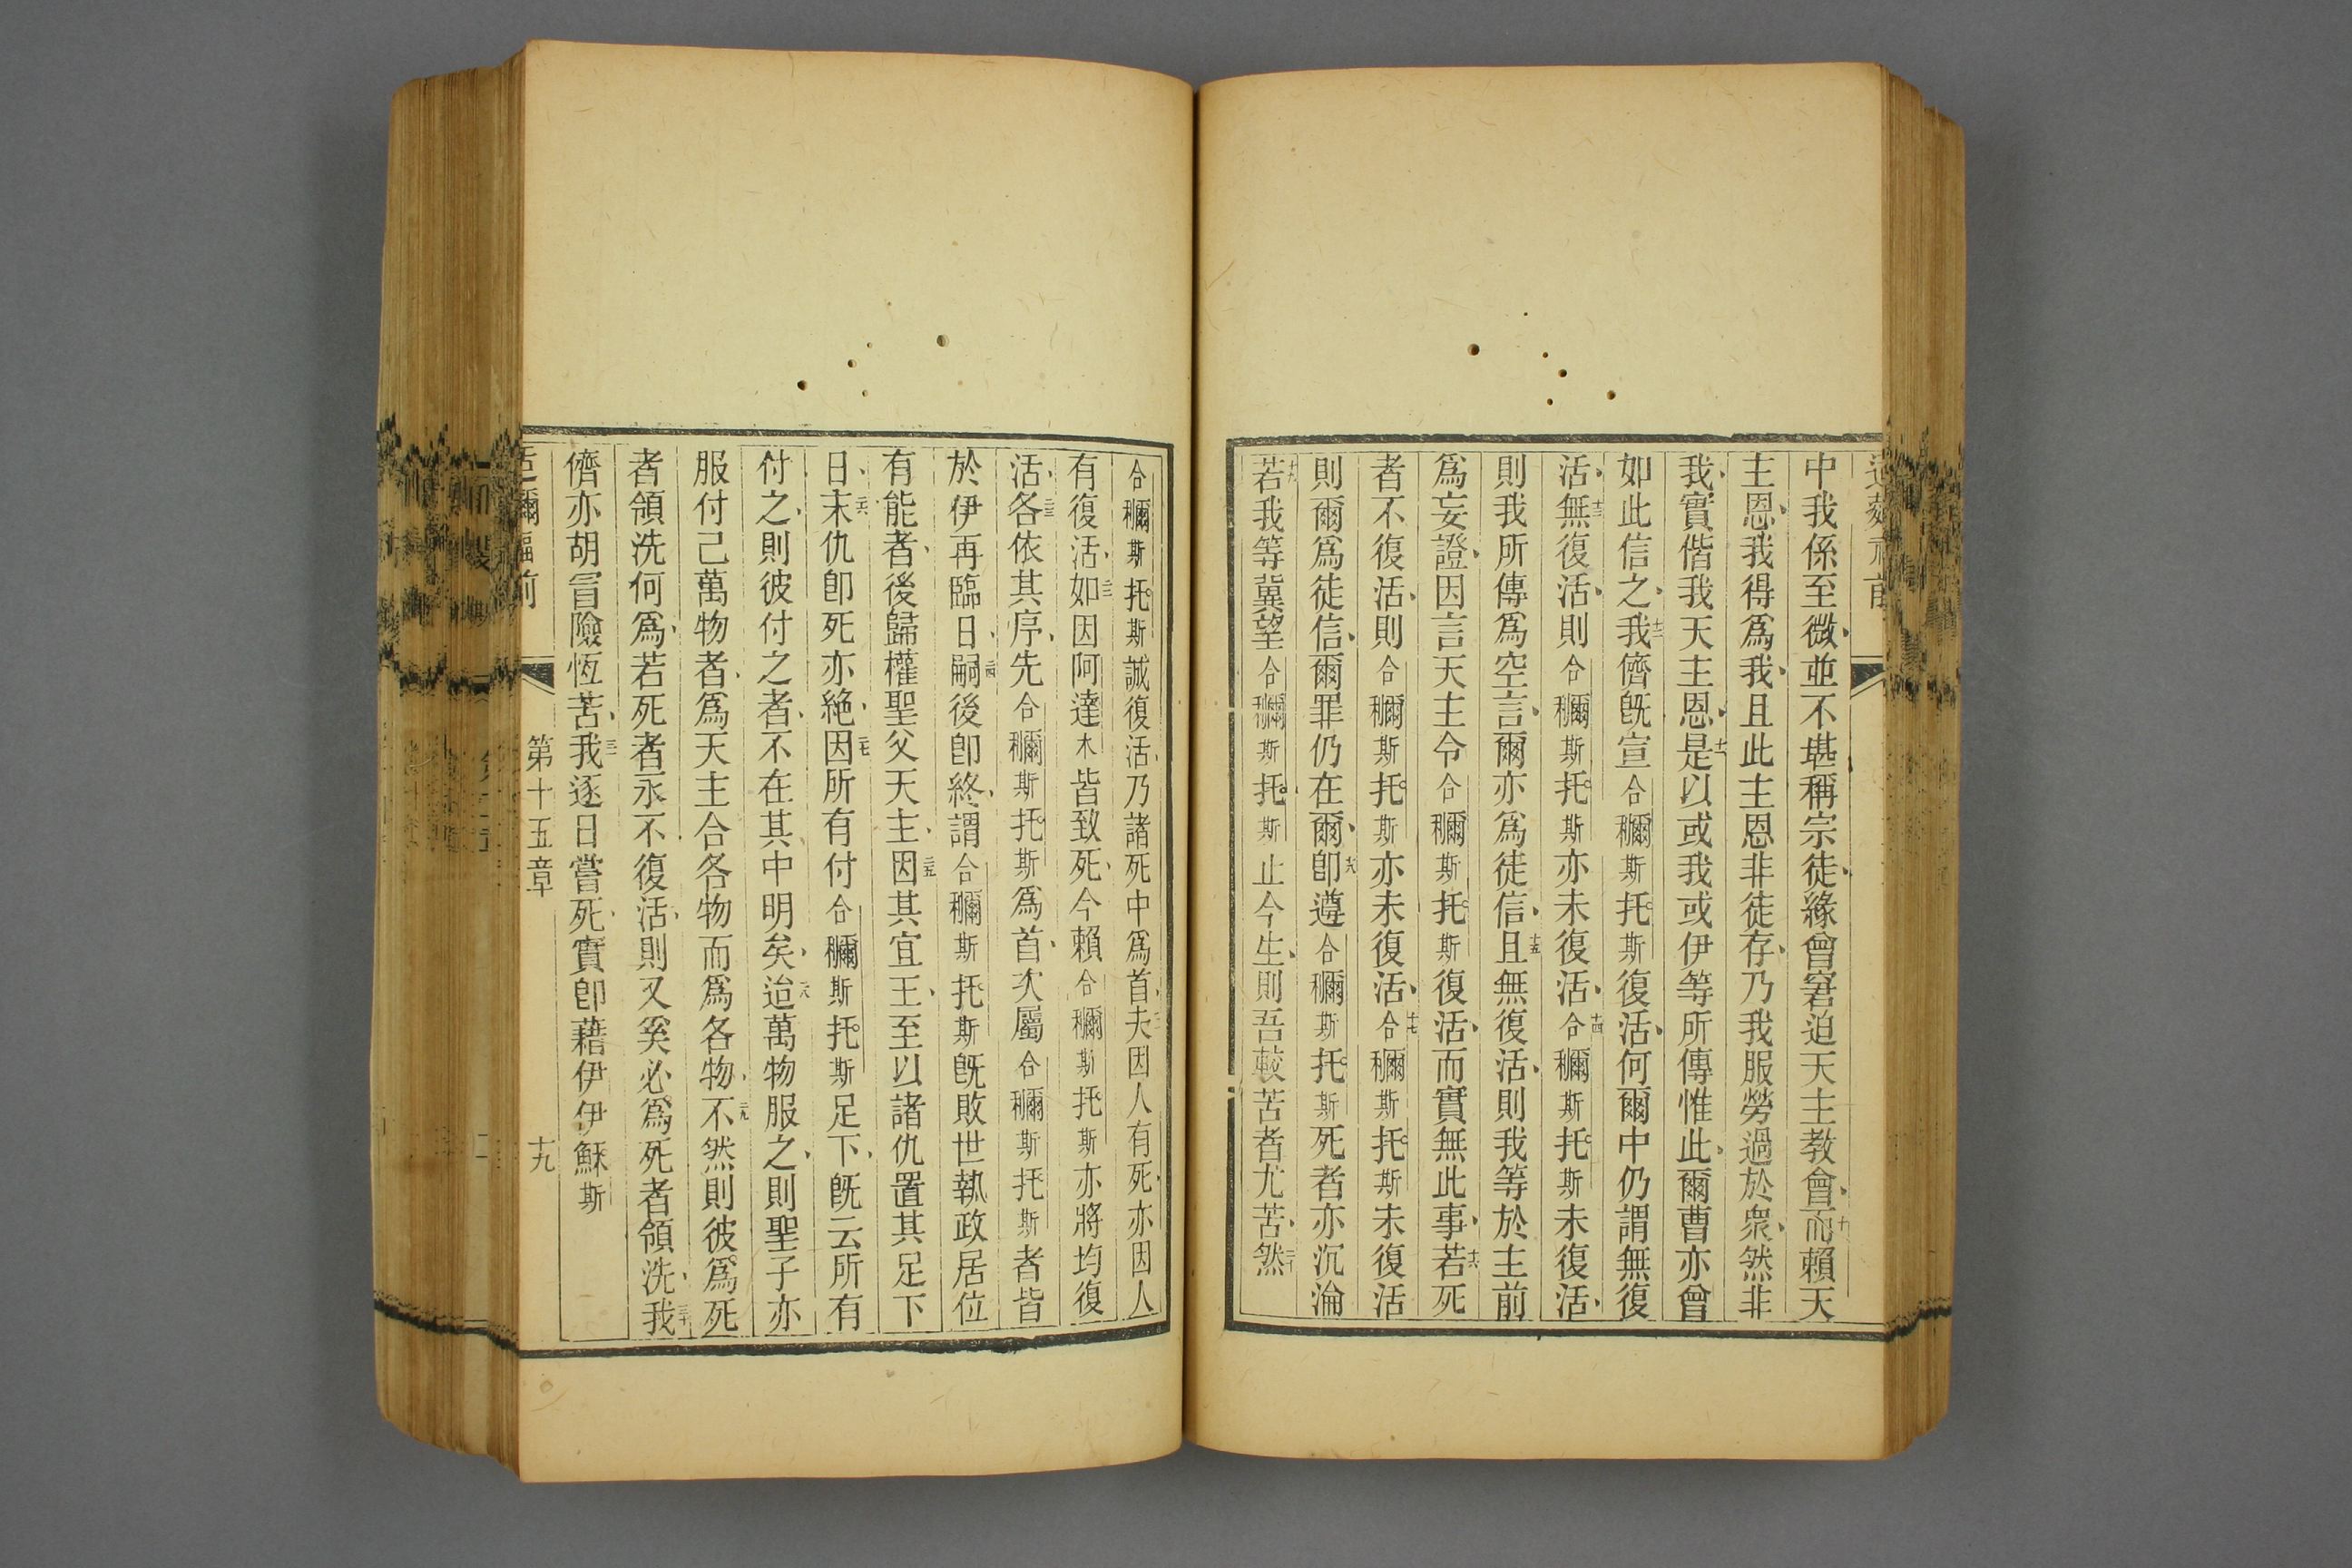 中我係至微並不堪稱宗徒緣曾窘迫天主教會九而賴天
主恩我得爲我且此主恩非徒存乃我服勞過於衆然非
我實偕我天主恩十一是以或我或伊等所傳惟此爾曹亦曾
如此信之十二我儕旣宣合穪斯托斯復活何爾中仍謂無復
活十三無復活則合穪斯托斯亦未復活十四合穪斯托斯未復活
則我所傳爲空言爾亦爲徒信十五且無復活則我等於主前
爲妄證因言天主令合穪斯托斯復活而實無此事十六若死
者不復活則合穪斯托斯亦未復活十七合穪斯托斯未復活
則爾爲徒信爾罪仍在爾十八卽遵合穪斯托斯死者亦沉淪
十九若我等冀望合穪斯托斯止今生則吾較苦者尤苦二十然
合穪斯托斯誠復活乃諸死中爲首二一夫因人有死亦因人
有復活二二如因阿達木皆致死今賴合穪斯托斯亦將均復
活二三各依其序先合穪斯托斯爲首次屬合穪斯托斯者皆
於伊再臨日二四嗣後卽終謂合穪斯托斯旣敗世執政居位
有能者後歸權聖父天主二五因其宜王至以諸仇置其足下
日二六末仇卽死亦絶二七因所有付合穪斯托斯足下旣云所有
付之則彼付之者不在其中明矣二八迨萬物服之則聖子亦
服付己萬物者爲天主合各物而爲各物二九不然則彼爲死
者領洗何爲若死者永不復活則又奚必爲死者領洗三十我
儕亦胡冒險恆苦三一我逐日嘗死實卽藉伊伊穌斯
第十五章
十九